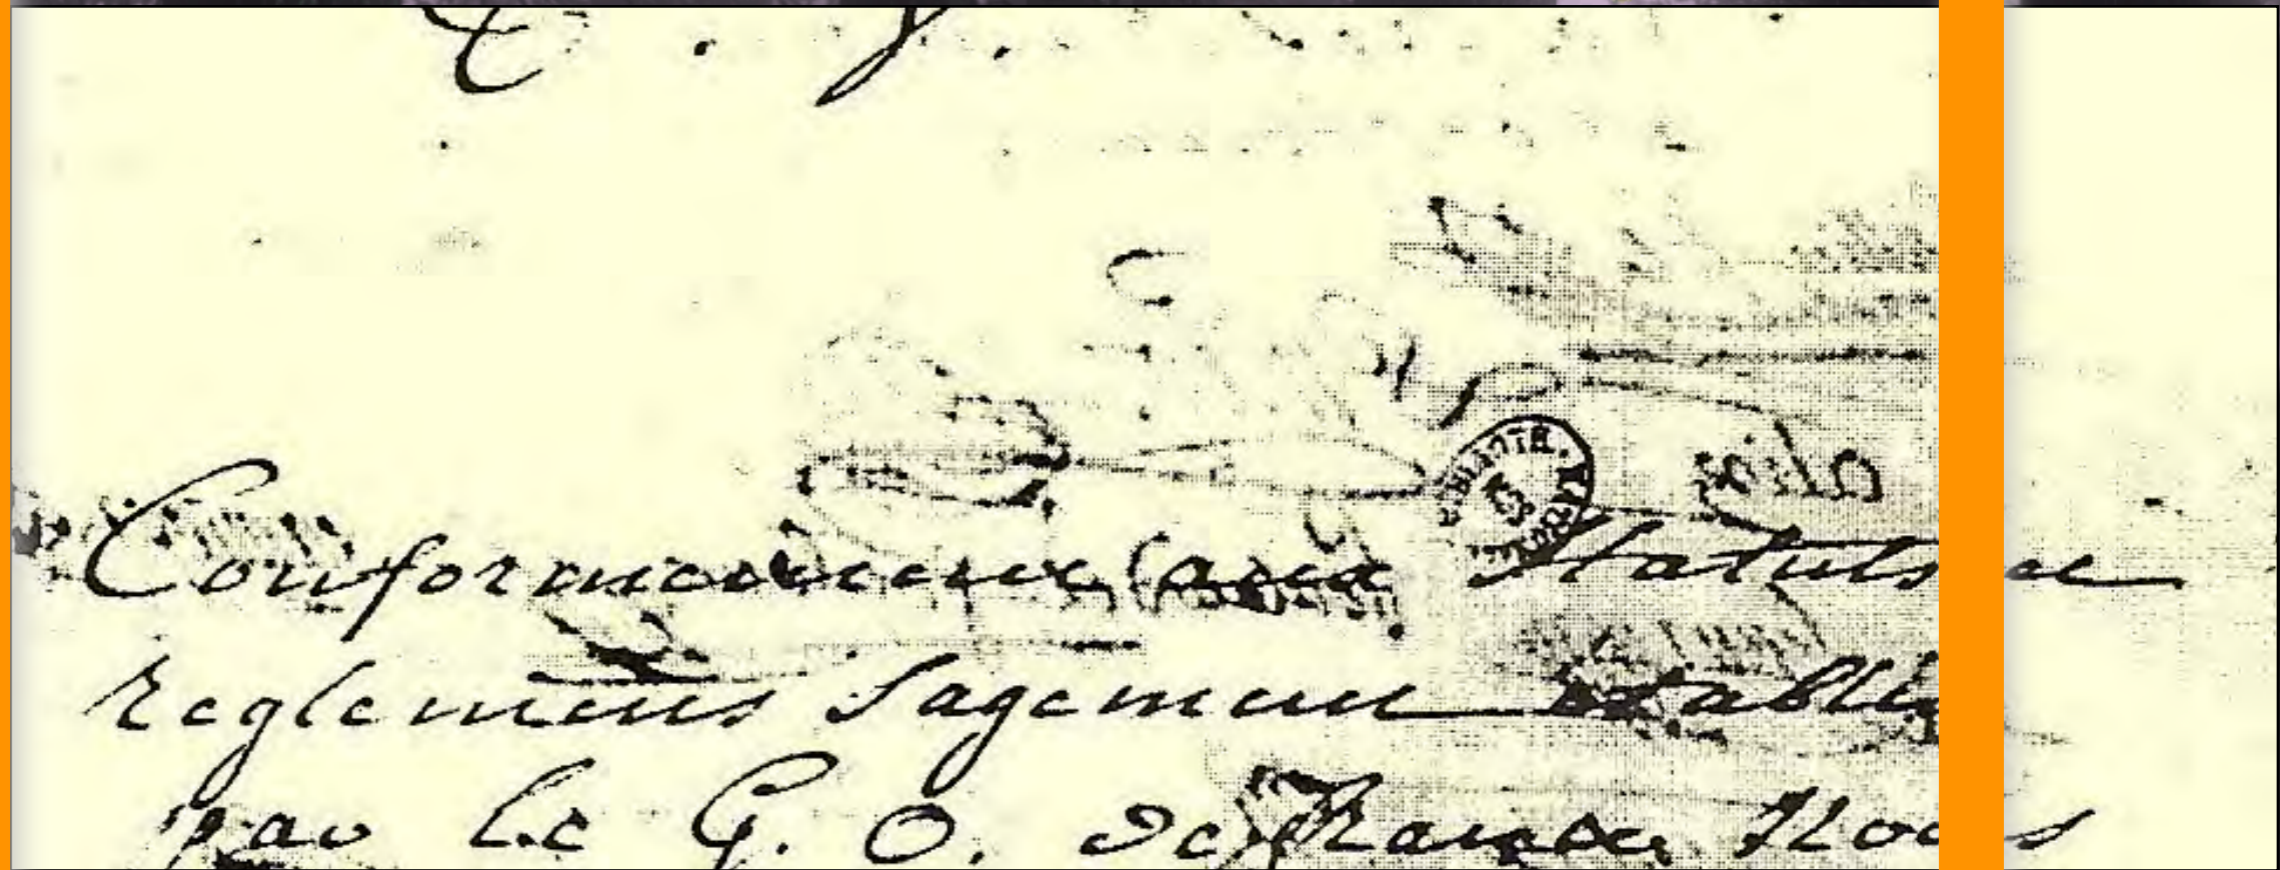 Conformement aux Statuts et
Reglemens Sagement établis
par le G. O. de France, Nous